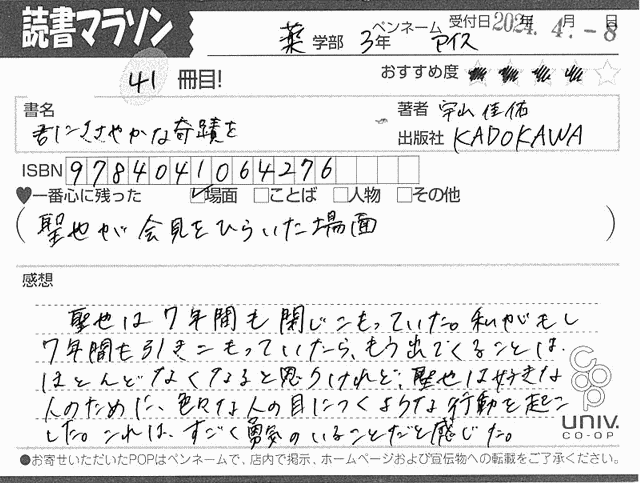 読書マラソン
薬 学部 3年 ペンネーム アイス 受付日 2024年 4月 -8日
41 冊目!
おすすめ度 ★★★★☆
書名 君にささやかな奇蹟を
著者 宇山佳佑
出版社 KADOKAWA
ISBN 9784041064276
♥一番心に残った ☑場面 □ことば □人物 □その他
(聖也が会見をひらいた場面)
感想
聖也は7年間も閉じこもっていた。私がもし
7年間も引きこもっていたら、もう出てくることは
ほとんどなくなると思うけれど、聖也は好きな
人のために、色々な人の目につくような行動を起こ
した。これは、すごく勇気のいることだと感じた。
coop
UNIV.
CO-OP
●お寄せいただいたPOPはペンネームで、店内で掲示、ホームページおよび宣伝物への転載をご了承ください。